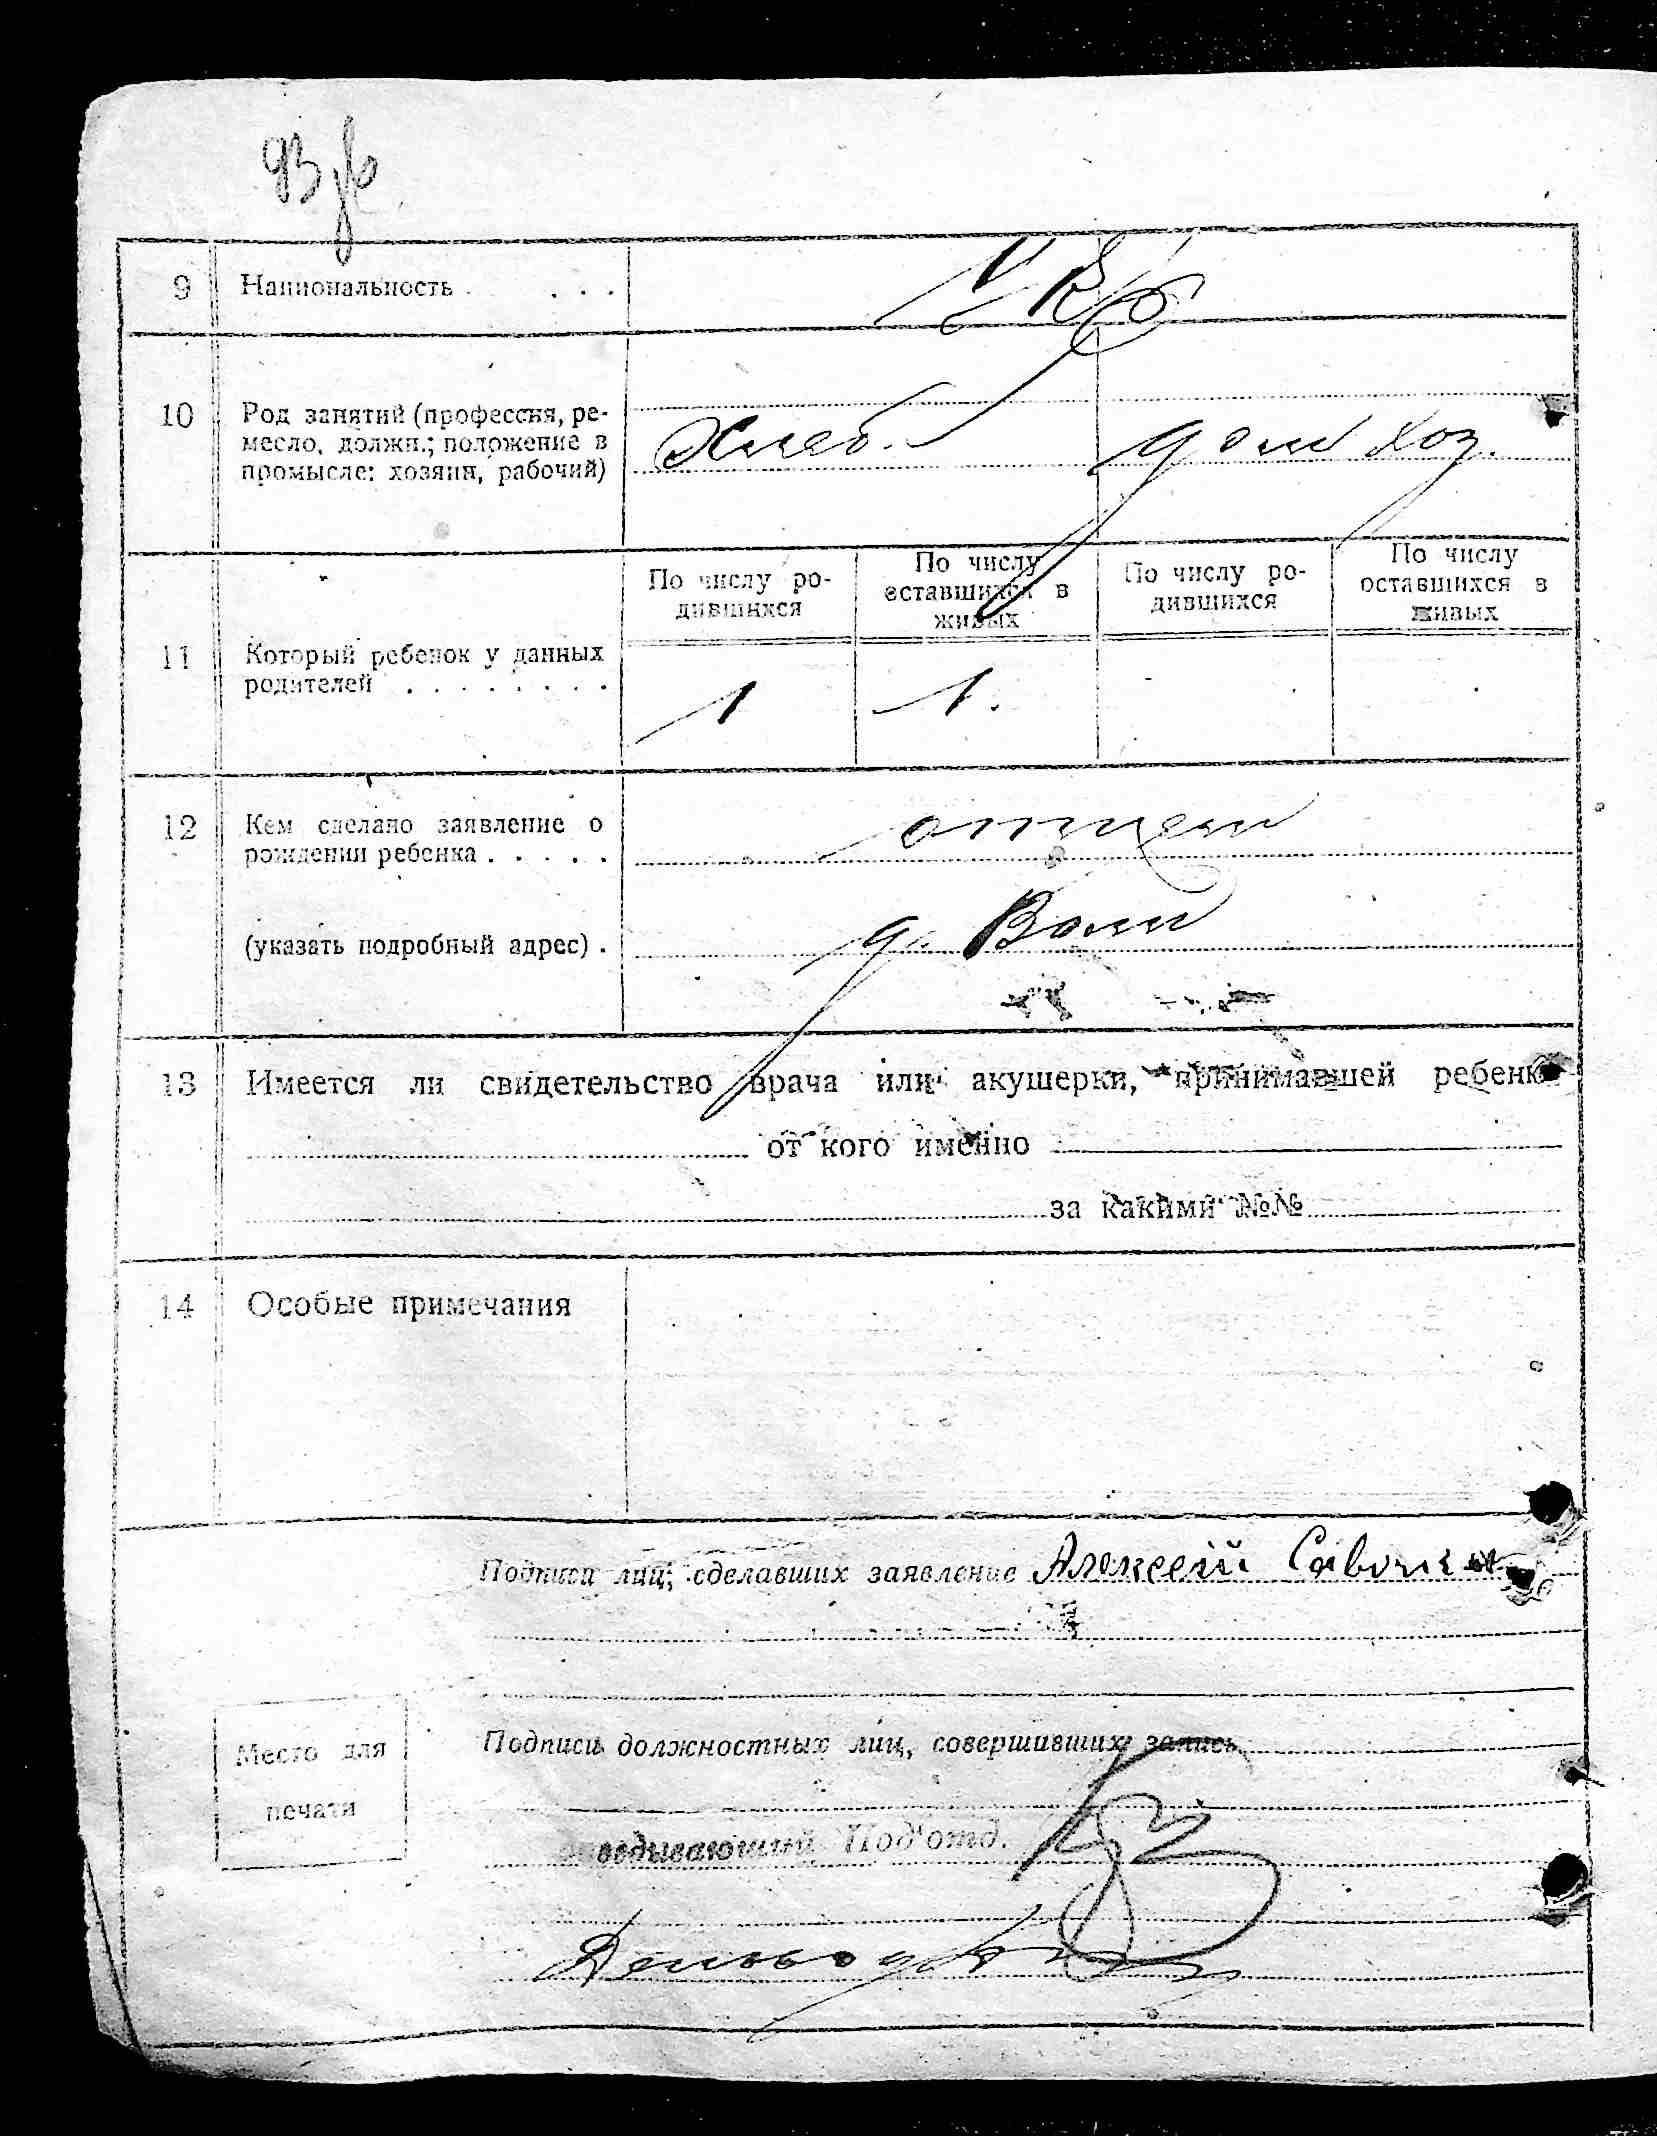 93
9 Национальность . . . . Укр
10 Род занятий (профессия, ре-
месло, должн.; положение в
промысле: хозяин, рабочий)
Хлеб. дом хоз.
По числу ро-
дившихся
По числу
оставшихся в
живых
По числу ро-
дившихся
По числу
оставшихся в
живых
11 Который ребенок у данных
родителей . . . . . . . .
1 1.
12 Кем сделано заявление о
рождении ребенка . . . . .
отцем
(указать подробный адрес) .
д. Воли
13 Имеется ли свидетельство врача или акушерки, принимавшей ребенка
от кого именно
за какими №№
14 Особые примечания
Подписи лиц, сделавших заявление Алексей
Место для
печати
Подписи должностных лиц, совершивших запись
заведывающий Под'отд.